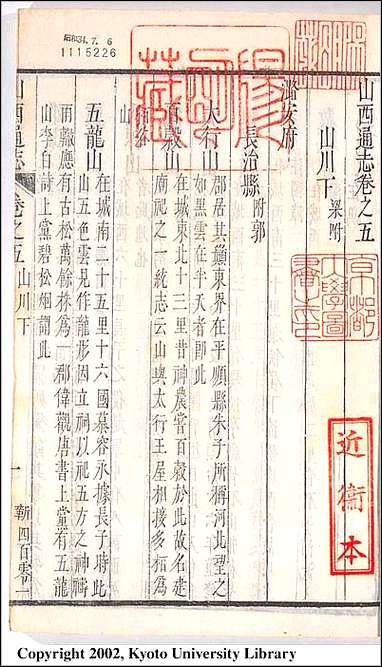 昭和34.7.6
1115226
山西通志卷之五
山川下 梁附
潞安府
長治縣 附郭
太行山 郡居其鎮東界在平順縣朱子所稱河北望之
如黒雲在半天者即此
百穀山 在城東北十三里昔神農嘗百穀於此故名建
廟祀之一統志云山與太行王屋相接多
五龍山 在城南二十五里十六國慕容永據長子時此
山五色雲見作龍形因立祠以祀五方之神禱
雨輙應有古松萬餘株為一郡偉觀唐書上黨有五龍
山李白詩上黨碧松烟謂此
山西通志
卷之五
山川下
一
四百零一
京都
大學圖
書之印
近衞本
Copyright 2002, Kyoto University Library